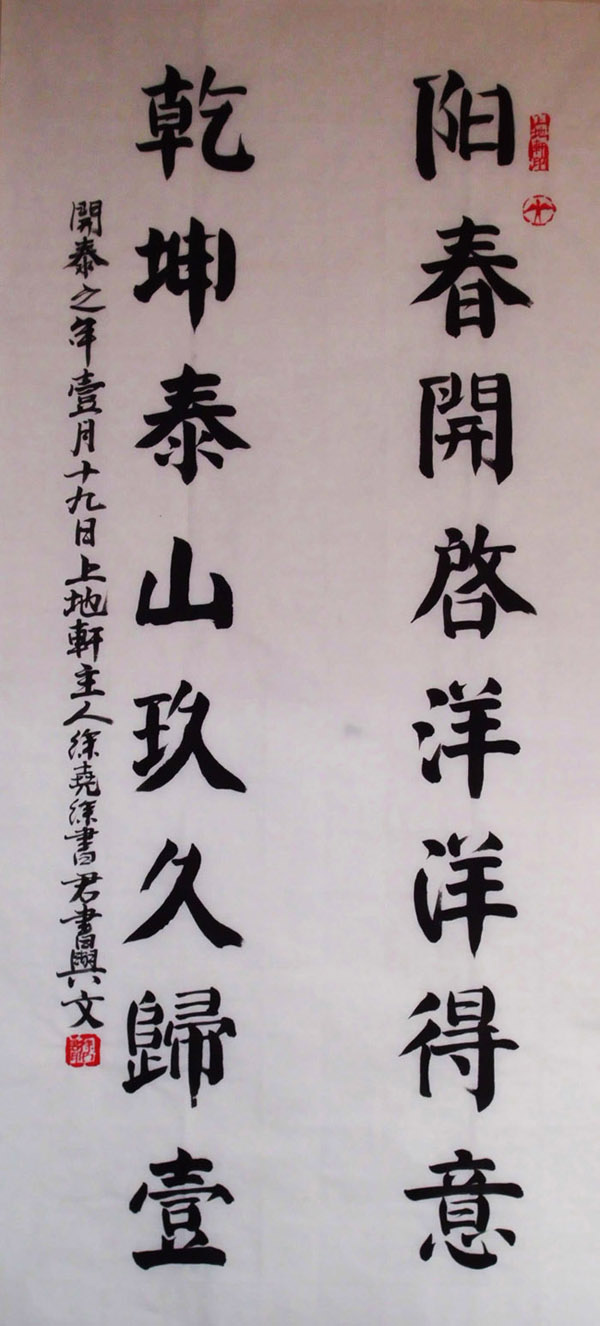 阳春開啓洋洋得意
乾坤泰山玖久歸壹
開泰之年壹月十九日上地軒主人徐堯徐書君書與文